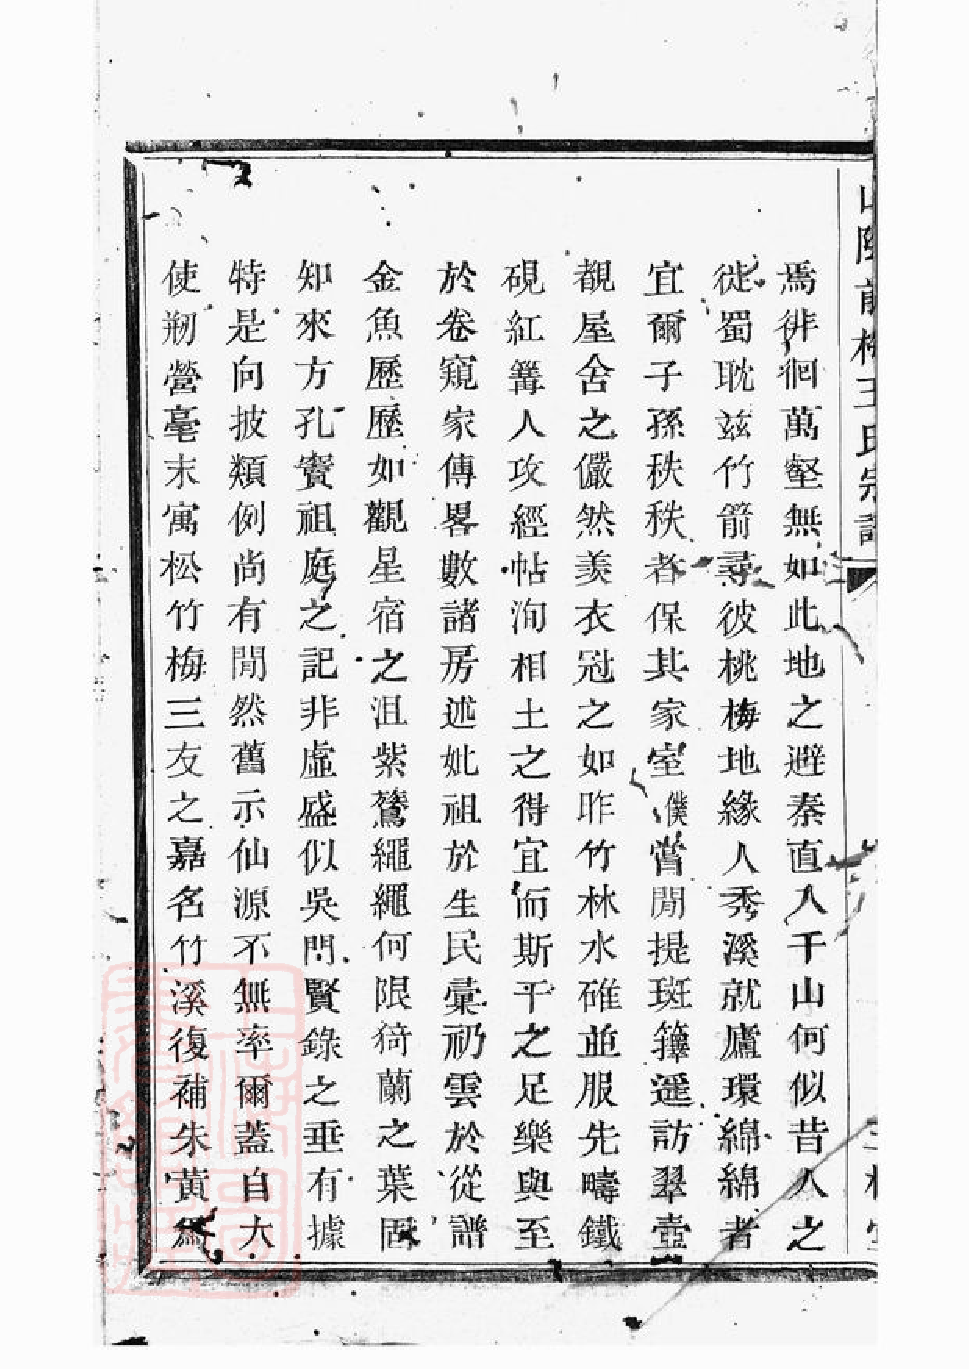 山陰前梅王氏宗譜
焉徘徊萬壑無如此地之避秦直入千山何似昔人之
徙蜀耽兹竹箭尋彼桃梅地緣人秀溪就廬環綿綿者
宜爾子孫秩秩者保其家室僕嘗閒提斑籜遥訪翠壺
覩屋舍之儼然羡衣冠之如昨竹林水碓並服先疇鐵
硯紅篝人攻經帖洵相土之得宜而斯干之足樂與至
於卷窺家傳畧數諸房述妣祖於生民彙礽雲於從譜
金魚歷歷如觀星宿之沮紫鶯繩繩何限猗蘭之葉固
知來方孔賽祖庭之記非虛盛似吳門賢錄之垂有據
特是向披類例尚有閒然舊示仙源不無率爾蓋自大
使剏營毫末寓松竹梅三友之嘉名竹溪復補朱黄爲